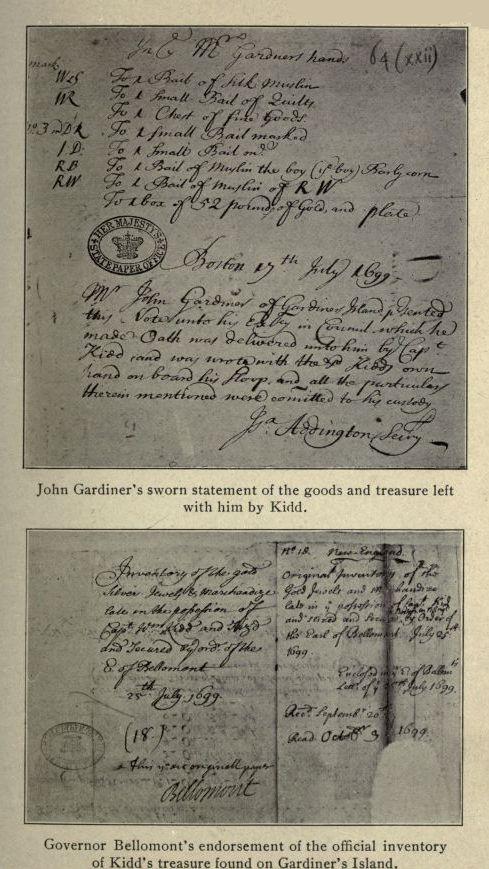 In ye Mr Gardners hands 64 (xxii)
mark
W&S To 1 Bail of silk Muslin
WR To 1 Small Bail of Quilts
To 1 Chest of fine Goods
No 3 mDR To 1 small Bail marked
ID To 1 Small Bail md
RB To 1 Bail of Muslin the boy (ye boy) Barlycorn
RW To 1 Bail of muslin of R W
To 1 box of 52 pounds of Gold, and plate
HER MAJESTY'S
STATE PAPER OFFICE
Boston 17th July 1699
Mr John Gardiner of Gardiners Island presented
this Note unto his in Council which he
made Oath was delivered unto him by Capt
Kidd and was wrote with the sd Kidds own
hand on board his sloop, and all the particulars
therein mentioned were comitted to his custody
Jsa Addington Secry
John Gardiner's sworn statement of the goods and treasure left
with him by Kidd.
Inventory of the gold
Silver Jewells & Merchandize
late in the possession of
Capt Wm Kidd and
and Secured by ord. of the
E of Bellomont
25th July 1699
(18)
this is ye originall paper
Bellomont
No 18. New-England.
Original Inventory of the
Gold Jewels and
late in ye possession of Capt Kidd
and Seized and Secured by Order of
the Earl of Bellomont. July 25th
1699.
Enclosed in ye E of Bellomts
Lettr of ye July 1699.
Recd Septembr 20th
Read Octobr 3 1699
Governor Bellomont's endorsement of the official inventory
of Kidd's treasure found on Gardiner's Island.